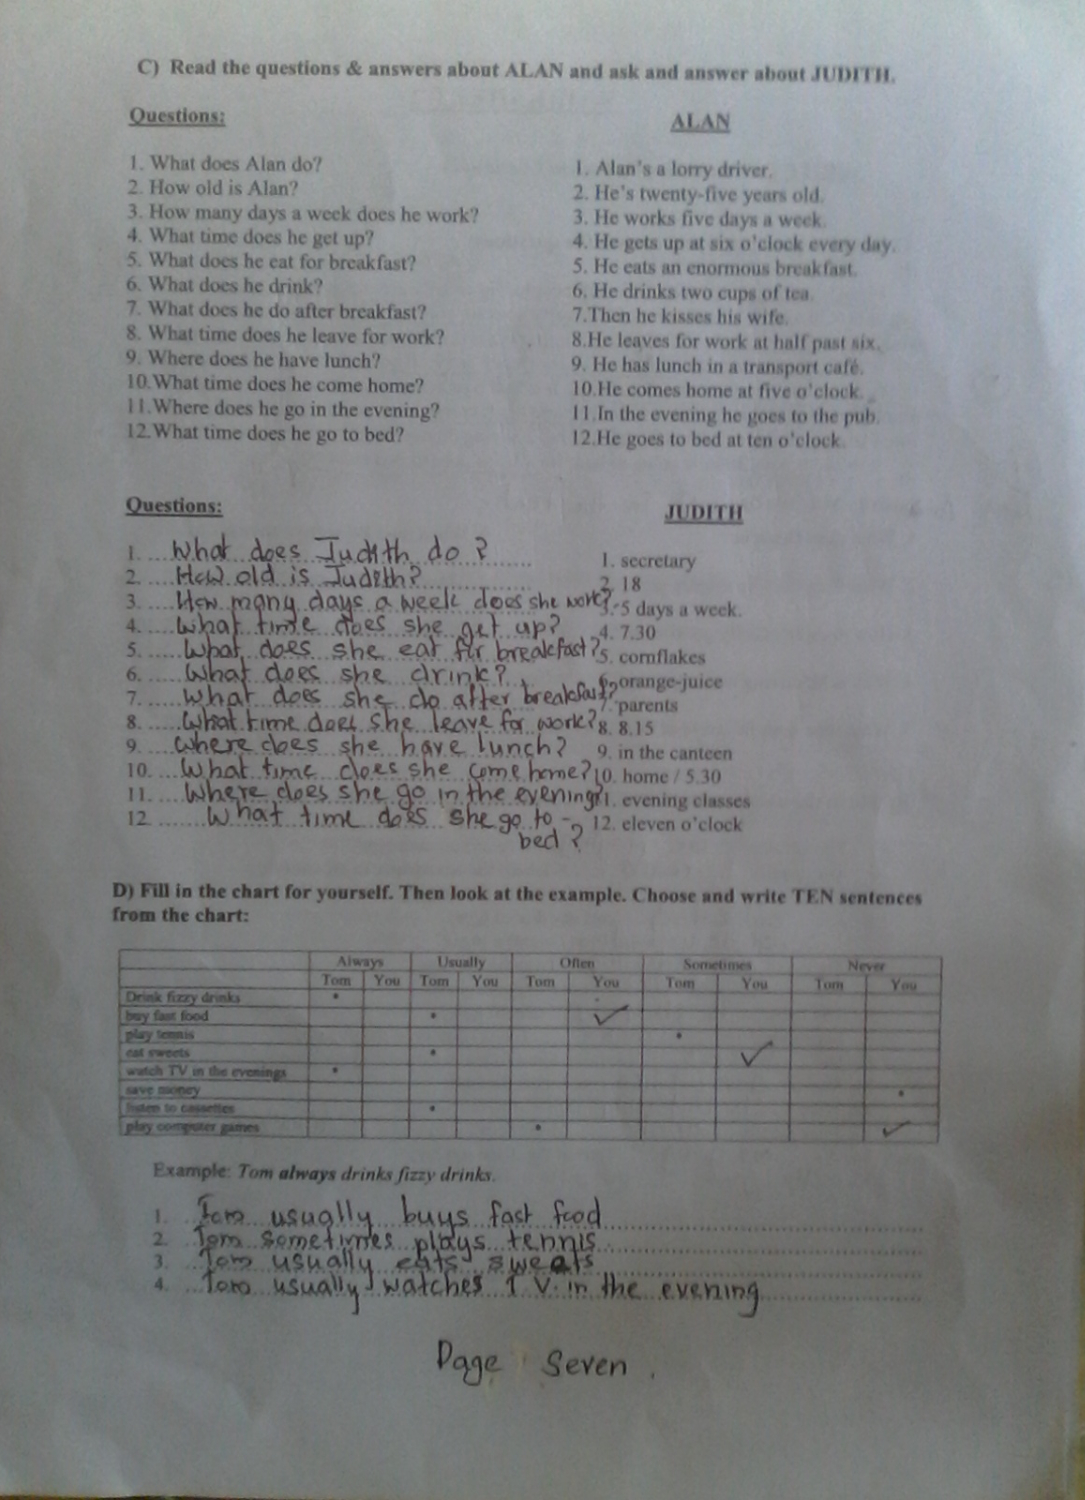 C) Read the questions & answers about ALAN and ask and answer about JUDITH.
Questions:
ALAN
1. What does Alan do?
1. Alan's a lorry driver.
2. How old is Alan?
2. He's twenty-five years old.
3. How many days a week does he work?
3. He works five days a week.
4. What time does he get up?
4. He gets up at six o'clock every day.
5. What does he eat for breakfast?
5. He eats an enormous breakfast.
6. What does he drink?
6. He drinks two cups of tea.
7. What does he do after breakfast?
7.Then he kisses his wife.
8. What time does he leave for work?
8.He leaves for work at half past six.
9. Where does he have lunch?
9. He has lunch in a transport café.
10.What time does he come home?
10.He comes home at five o'clock.
11.Where does he go in the evening?
11.In the evening he goes to the pub.
12.What time does he go to bed?
12.He goes to bed at ten o'clock.
Questions:
JUDITH
1. What does Judith do ?
1. secretary
2. How old is Judith?
2. 18
3. How many days a week does she work?
3. 5 days a week.
4. What time does she get up?
4. 7.30
5. What does she eat for breakfast?
5. cornflakes
6. What does she drink?
6. orange-juice
7. What does she do after breakfast?
7. parents
8. What time does she leave for work?
8. 8.15
9. Where does she have lunch?
9. in the canteen
10. What time does she come home?
10. home / 5.30
11. Where does she go in the evening?
11. evening classes
12. What time does she go to -
bed ?
12. eleven o'clock
D) Fill in the chart for yourself. Then look at the example. Choose and write TEN sentences
from the chart:
Always Usually Often Sometimes Never
Tom You Tom You Tom You Tom You Tom You
Drink fizzy drinks
buy fast food
play tennis
eat sweets
watch TV in the evenings
save money
listen to cassettes
play computer games
Example: Tom always drinks fizzy drinks.
1. Tom usually buys fast food
2. Tom sometimes plays tennis
3. Tom usually eats sweats
4. Tom usually watches T V. in the evening
Page Seven .